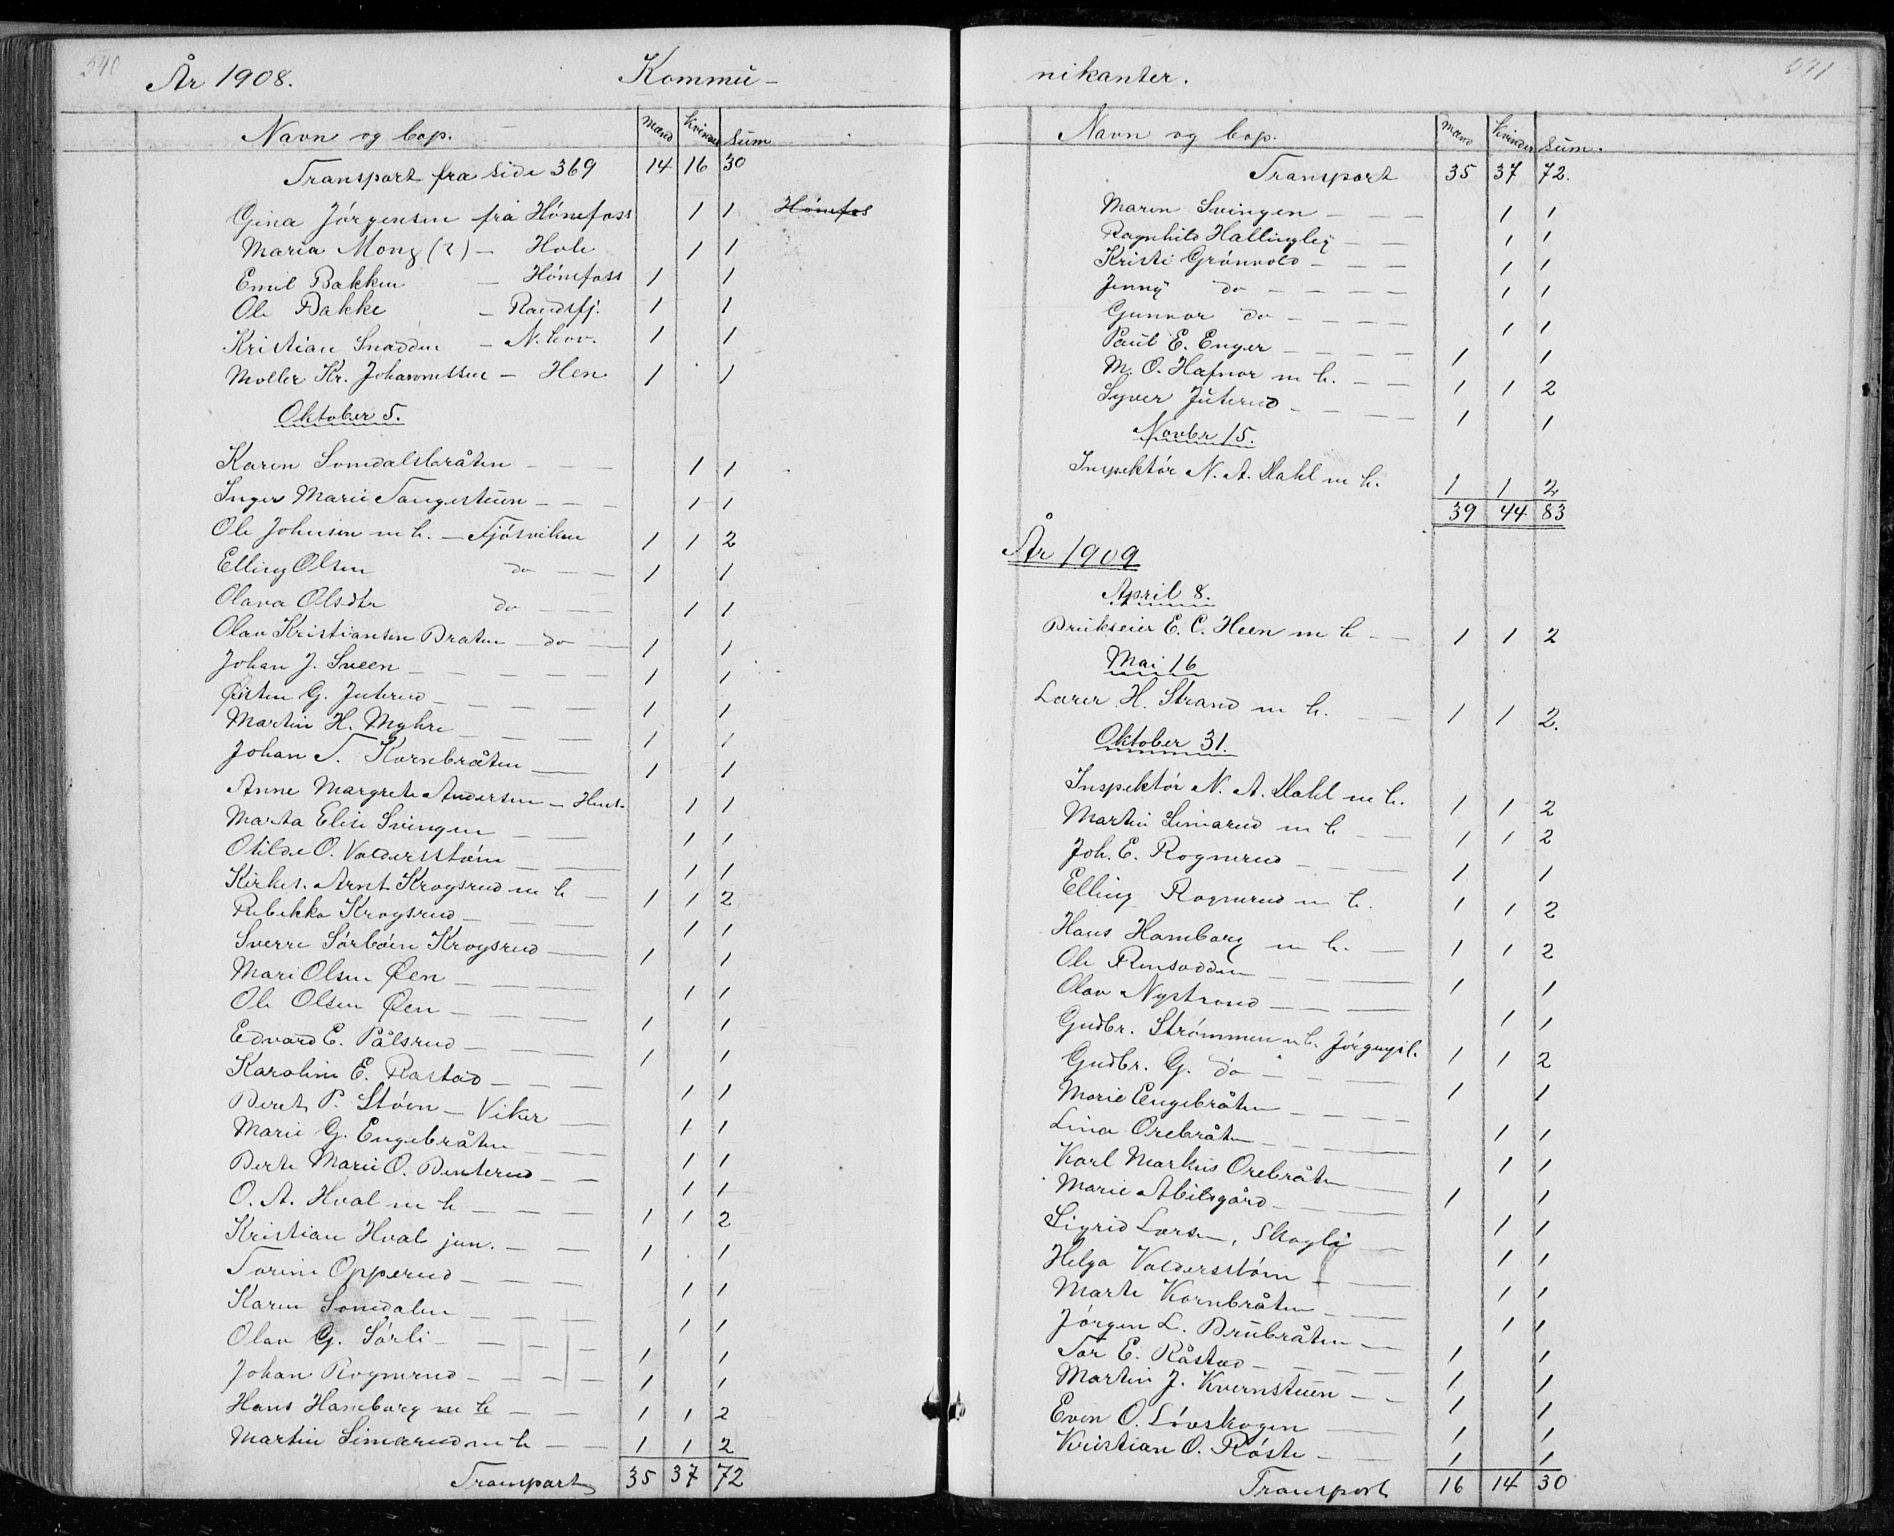 540
År 1908. Kommu-
Navn og bop. Mænd Kvinder Sum
Transport fra side 369 14 16 30
Gina Jörgensen frå Hönefoss 1 1 Hönefos
Maria Mong (?) - Hole 1 1
Emil Bakken - Hönefoss 1 1
Ole Bakke - Randsfj. 1 1
Kristian Snadden - N. hov. 1 1
Möller Kr. Johannessen - Hen 1 1
Oktober 5.
Karen Somdalsbråten - - - 1 1
Inger Marie Tangestuen - - - 1 1
Ole Johnsen m h. - Tjösviken 1 1 2
Elling Olsen do - - 1 1
Olava Olsdtr do - - 1 1
Olav Kristiansen Braten - do - 1 1
Johan J. Sveen - - - 1 1
Østen G. Juterud - - - 1 1
Martin H. Myhre - - - 1 1
Johan T. Kornbråten - 1 1
Anne Margrete Andersen - Hus. 1 1
Marta Elise Svingen - - 1 1
Otilde O. Valdersstöen - - 1 1
Kirkes. Arnt Krogsrud m h - 1 1 2
Rebekka Krogsrud - - - 1 1
Sverre Sörbøen Krogsrud - 1 1
Mari Olsen Øen - - - 1 1
Ole Olsen Øen - - - 1 1
Edvard E. Pålsrud - - - 1 1
Karoline E. Rastad - - - 1 1
Beret P. Stöen - Viker - 1 1
Marie G. Engebråten - - 1 1
Berte Marie O. Benterud - - 1 1
O. A. Hval m h - - - 1 1 2
Kristian Hval jun. - - 1 1
Torine Opperud - - - 1 1
Karen Somdalen - - - 1 1
Olav G. Sörli - - - 1 1
Johan Rognerud - - - 1 1
Hans Hamborg m h - - 1 1 2
Martin Simarud m h - - 1 1 2
Transport 35 37 72
541
nikanter.
Navn og bop. Mænd Kvinder Sum.
Transport 35 37 72.
Maren Svingen - - - 1 1
Ragnhild Hallingby - - 1 1
Kristi Grönvold - - - 1 1
Jenny do - - - - 1 1
Gunvor do - - - - 1 1
Paul E. Enger - - - - 1 1
M. O. Hafnor m h. - - 1 1 2
Syver Juterud - - - 1 1
Novbr 15.
Inspektör N. A. Dahl m h. 1 1 2
39 44 83
År 1909
April 8.
Brukseier E. C. Heen m h - - 1 1 2
Mai 16
Lærer H. Strand m h. - - 1 1 2.
Oktober 31.
Inspektör N. A. Dahl m h. 1 1 2
Martin Simarud m h - - 1 1 2
Joh. E. Rognerud - - - 1 1
Elling Rognerud m h. 1 1 2
Hans Hamborg m h. - 1 1 2
Ole Rensodden - - - 1 1
Olav Nystrand - - - 1 1
Gudbr. Strömmen m h. 1 1 2
Gudbr. G. do - - - 1 1
Marie Engebråten - - - 1 1
Lina Orebråten - - - 1 1
Karl Markus Orebråten - 1 1
Marie Abilsgård - - - 1 1
Sigrid Larsen, Skogli - 1 1
Helga Valdersstöen - - 1 1
Marte Kornbråten - - 1 1
Jörgen L. Brubråten - - 1 1
Tor E. Råstad - - - 1 1
Martin J. Kvernstuen - - 1 1
Even O. Lövskogen - 1 1
Kristian O. Röste - - 1 1
Transport 16 14 30